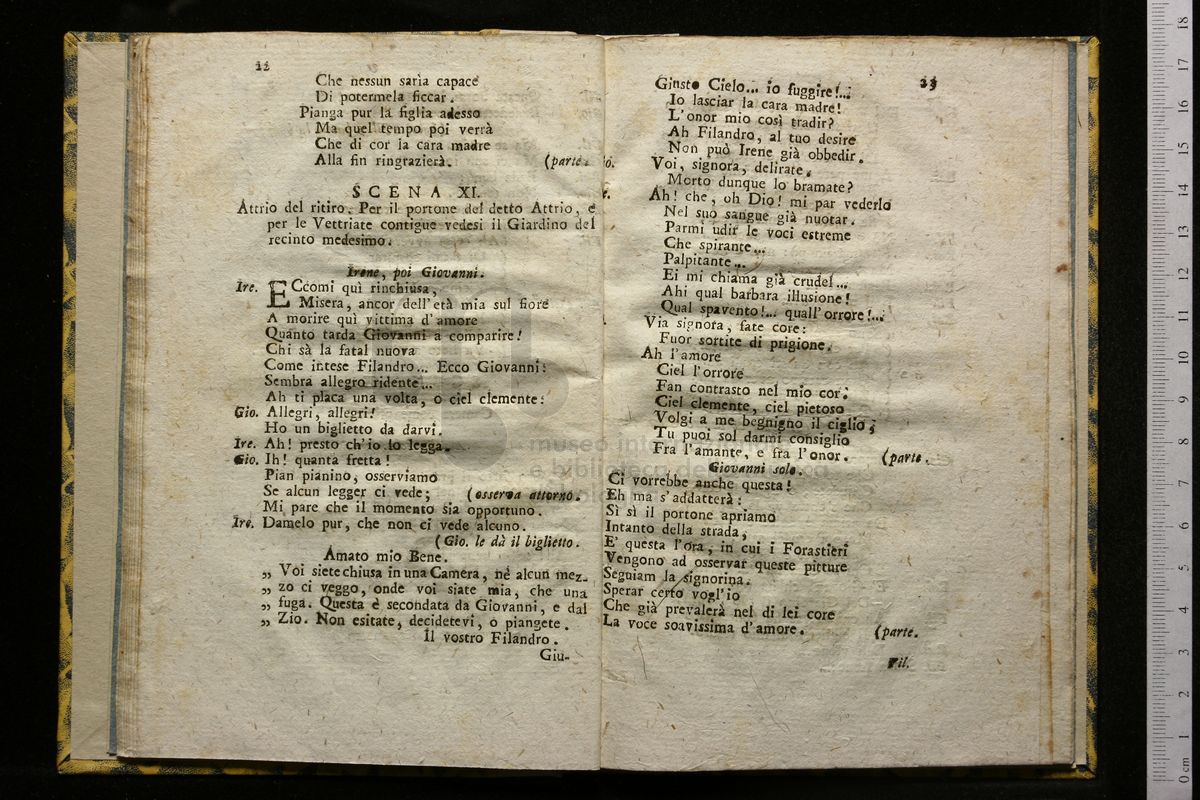 22
Che nessun sarìa capace
Di potermela ficcar.
Pianga pur la figlia adesso
Ma quel tempo poi verrà
Che di cor la cara madre
Alla fin ringrazierà. (parte.
SCENA XI.
Attrio del ritiro. Per il portone del detto Attrio, e
per le Vettriate contigue vedesi il Giardino del
recinto medesimo.
Irene, poi Giovanni.
Ire. ECcomi quì rinchiusa,
Misera, ancor dell'età mia sul fiore
A morire quì vittima d'amore
Quanto tarda Giovanni a comparire!
Chi sà la fatal nuova
Come intese Filandro... Ecco Giovanni:
Sembra allegro ridente...
Ah ti placa una volta, o ciel clemente:
Gio. Allegri, allegri!
Ho un biglietto da darvi.
Ire. Ah! presto ch'io lo legga.
Gio. Ih! quanta fretta!
Pian pianino, osserviamo
Se alcun legger ci vede; (osserva attorno.
Mi pare che il momento sia opportuno.
Ire. Damelo pur, che non ci vede alcuno.
(Gio. le dà il biglietto.
Amato mio Bene.
„ Voi siete chiusa in una Camera, nè alcun mez-
„ zo ci veggo, onde voi siate mia, che una
„ fuga. Questa è secondata da Giovanni, e dal
„ Zio. Non esitate, decidetevi, o piangete.
Il vostro Filandro.
Giu-
23
Giusto Cielo... io fuggire!...
Io lasciar la cara madre!
L'onor mio così tradir?
Ah Filandro, al tuo desire
Non può Irene già obbedir.
Voi, signora, delirate,
Morto dunque lo bramate?
Ah! che, oh Dio! mi par vederlo
Nel suo sangue già nuotar.
Parmi udir le voci estreme
Che spirante...
Palpitante...
Ei mi chiama già crudel...
Ahi qual barbara illusione!
Qual spavento!... quall'orrore!...
Via signora, fate core:
Fuor sortite di prigione.
Ah l'amore
Ciel l'orrore
Fan contrasto nel mio cor:
Ciel clemente, ciel pietoso
Volgi a me begnigno il ciglio;
Tu puoi sol darmi consiglio
Fra l'amante, e fra l'onor. (parte.
Giovanni solo.
Ci vorrebbe anche questa!
Eh ma s'addatterà:
Sì sì il portone apriamo
Intanto della strada,
E' questa l'ora, in cui i Forastieri
Vengono ad osservar queste pitture
Seguiam la signorina.
Sperar certo vogl'io
Che già prevalerà nel di lei core
La voce soavissima d'amore. (parte.
Fil.